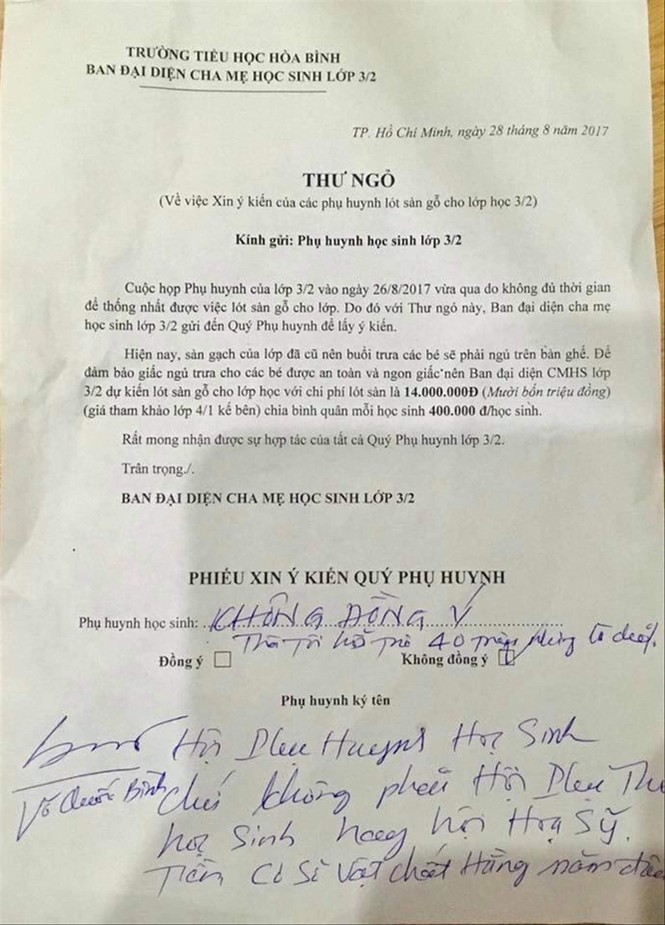 TRƯỜNG TIỂU HỌC HÒA BÌNH
BAN ĐẠI DIỆN CHA MẸ HỌC SINH LỚP 3/2
TP. Hồ Chí Minh, ngày 28 tháng 8 năm 2017
THƯ NGỎ
(Về việc Xin ý kiến của các phụ huynh lót sàn gỗ cho lớp học 3/2)
Kính gửi: Phụ huynh học sinh lớp 3/2
Cuộc họp Phụ huynh của lớp 3/2 vào ngày 26/8/2017 vừa qua do không đủ thời gian
để thống nhất được việc lót sàn gỗ cho lớp. Do đó với Thư ngỏ này, Ban đại diện cha mẹ
học sinh lớp 3/2 gửi đến Quý Phụ huynh để lấy ý kiến.
Hiện nay, sàn gạch của lớp đã cũ nên buổi trưa các bé sẽ phải ngủ trên bàn ghế. Để
đảm bảo giấc ngủ trưa cho các bé được an toàn và ngon giấc nên Ban đại diện CMHS lớp
3/2 dự kiến lót sàn gỗ cho lớp học với chi phí lót sàn là 14.000.000Đ (Mười bốn triệu đồng)
(giá tham khảo lớp 4/1 kế bên) chia bình quân mỗi học sinh 400.000 đ/học sinh.
Rất mong nhận được sự hợp tác của tất cả Quý Phụ huynh lớp 3/2.
Trân trọng./.
BAN ĐẠI DIỆN CHA MẸ HỌC SINH LỚP 3/2
PHIẾU XIN Ý KIẾN QUÝ PHỤ HUYNH
Phụ huynh học sinh: KHÔNG ĐỒNG Ý
40
Đồng ý Không đồng ý
Phụ huynh ký tên
Hội Phụ Huynh Học Sinh
Võ Quốc Bình chứ không phải Hội Phụ Thu
học Sinh hay hội Hoạ Sỹ.
Tiền Cơ Sở Vật chất Hàng năm đâu